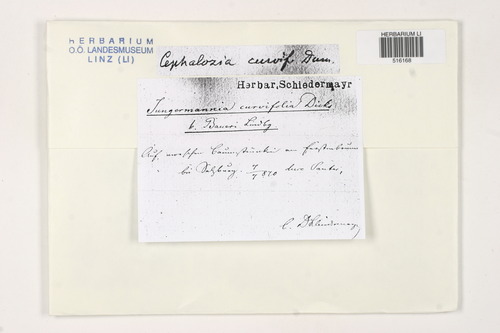 HERBARIUM
O.Ö. LANDESMUSEUM
LINZ (LI)
HERBARIUM LI
516168
Cephalozia curvif Dum.
Herbar, Schiedermayr
Jungermannia curvifolia Dicks
b. Baueri Lindbg
Auf morschen Baumstrünken am Fürstenbrunn
bei Salzburg. 7/7 870